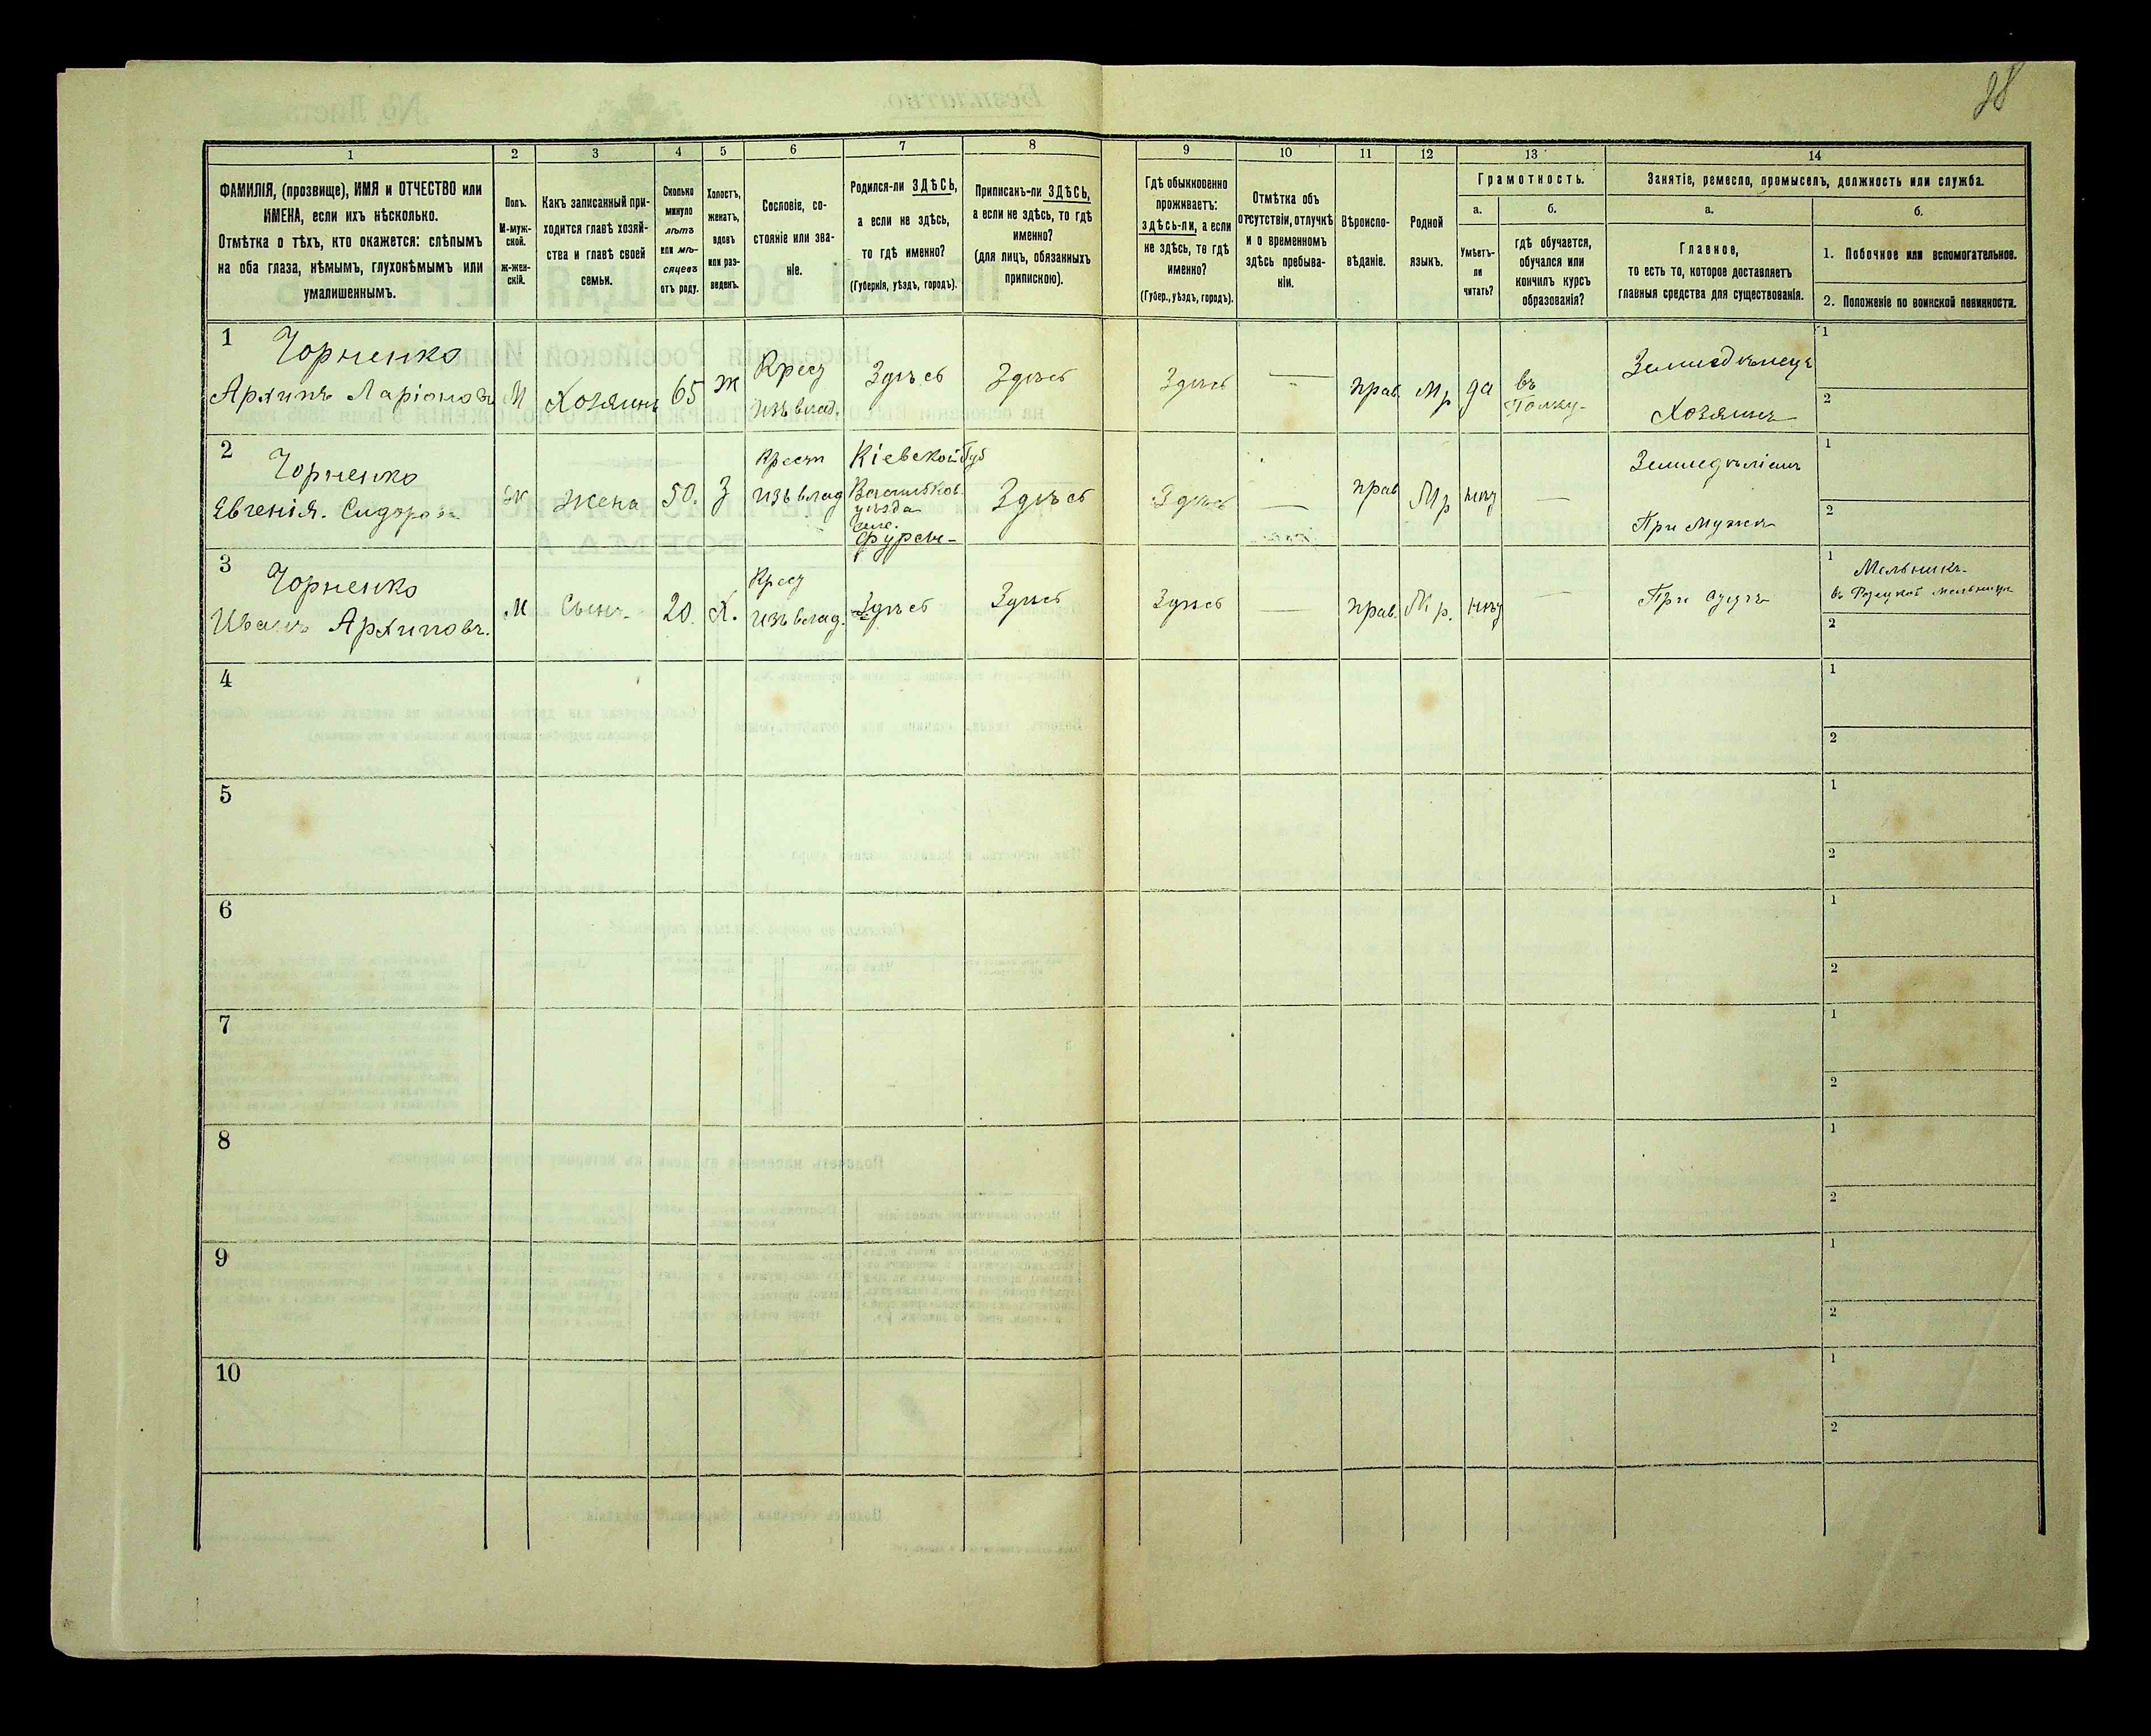 28
1
2
3
4
5
6
7
8
9
10
11
12
13
14
ФАМИЛІЯ, (прозвище), ИМЯ и ОТЧЕСТВО или
ИМЕНА, если ихъ нѣсколько.
Отмѣтка о тѣхъ, кто окажется: слѣпымъ
на оба глаза, нѣмымъ, глухонѣмымъ или
умалишеннымъ.
Полъ.
М-муж-
ской.
ж-жен-
скій.
Какъ записанный при-
ходится главѣ хозяй-
ства и главѣ своей
семьи.
Сколько
минуло
лѣтъ
или мѣ-
сяцевъ
отъ роду.
Холостъ,
женатъ,
вдовъ
или раз-
веденъ.
Сословіе, со-
стояніе или зва-
ніе.
Родился-ли ЗДѢСЬ,
а если не здѣсь,
то гдѣ именно?
(Губернія, уѣздъ, городъ).
Приписанъ-ли ЗДѢСЬ,
а если не здѣсь, то гдѣ
именно?
(для лицъ, обязанныхъ
припискою).
Гдѣ обыкновенно
проживаетъ:
здѣсь-ли, а если
не здѣсь, то гдѣ
именно?
(Губер., уѣздъ, городъ).
Отмѣтка объ
отсутствіи, отлучкѣ
и о временномъ
здѣсь пребыва-
ніи.
Вѣроиспо-
вѣданіе.
Родной
языкъ.
Грамотность.
а.
Умѣетъ-
ли
читать?
б.
гдѣ обучается,
обучался или
кончилъ курсъ
образованія?
Занятіе, ремесло, промыселъ, должность или служба.
а.
Главное,
то есть то, которое доставляетъ
главныя средства для существованія.
б.
1. Побочное или вспомогательное.
2. Положеніе по воинской повинности.
1
Чорненко
Архипъ Ларіоновъ
М
Хозяинъ
65
Ж
Крест
изъ влад.
Здѣсь
Здѣсь
Здѣсь
—
прав.
Мр
да
въ
Полку
Земледѣлецъ
Хозяинъ
1
2
2
Чорненко
Евгенія. Сидорова
Ж
Жена
50.
З
Крест
изъ влад
Кіевской Губ
Васильков.
уѣзда
Здѣсь
Здѣсь
—
прав
Мр
нѣт
—
При мужѣ
1
2
3
Чорненко
Иванъ Архиповъ.
М
Сынъ.
20.
Х.
Крест
изъ влад.
Здѣсь
Здѣсь
Здѣсь
—
прав.
Мр.
нѣт
—
При отцѣ
1
Мельникъ
2
4
1
2
5
1
2
6
1
2
7
1
2
8
1
2
9
1
2
10
1
2